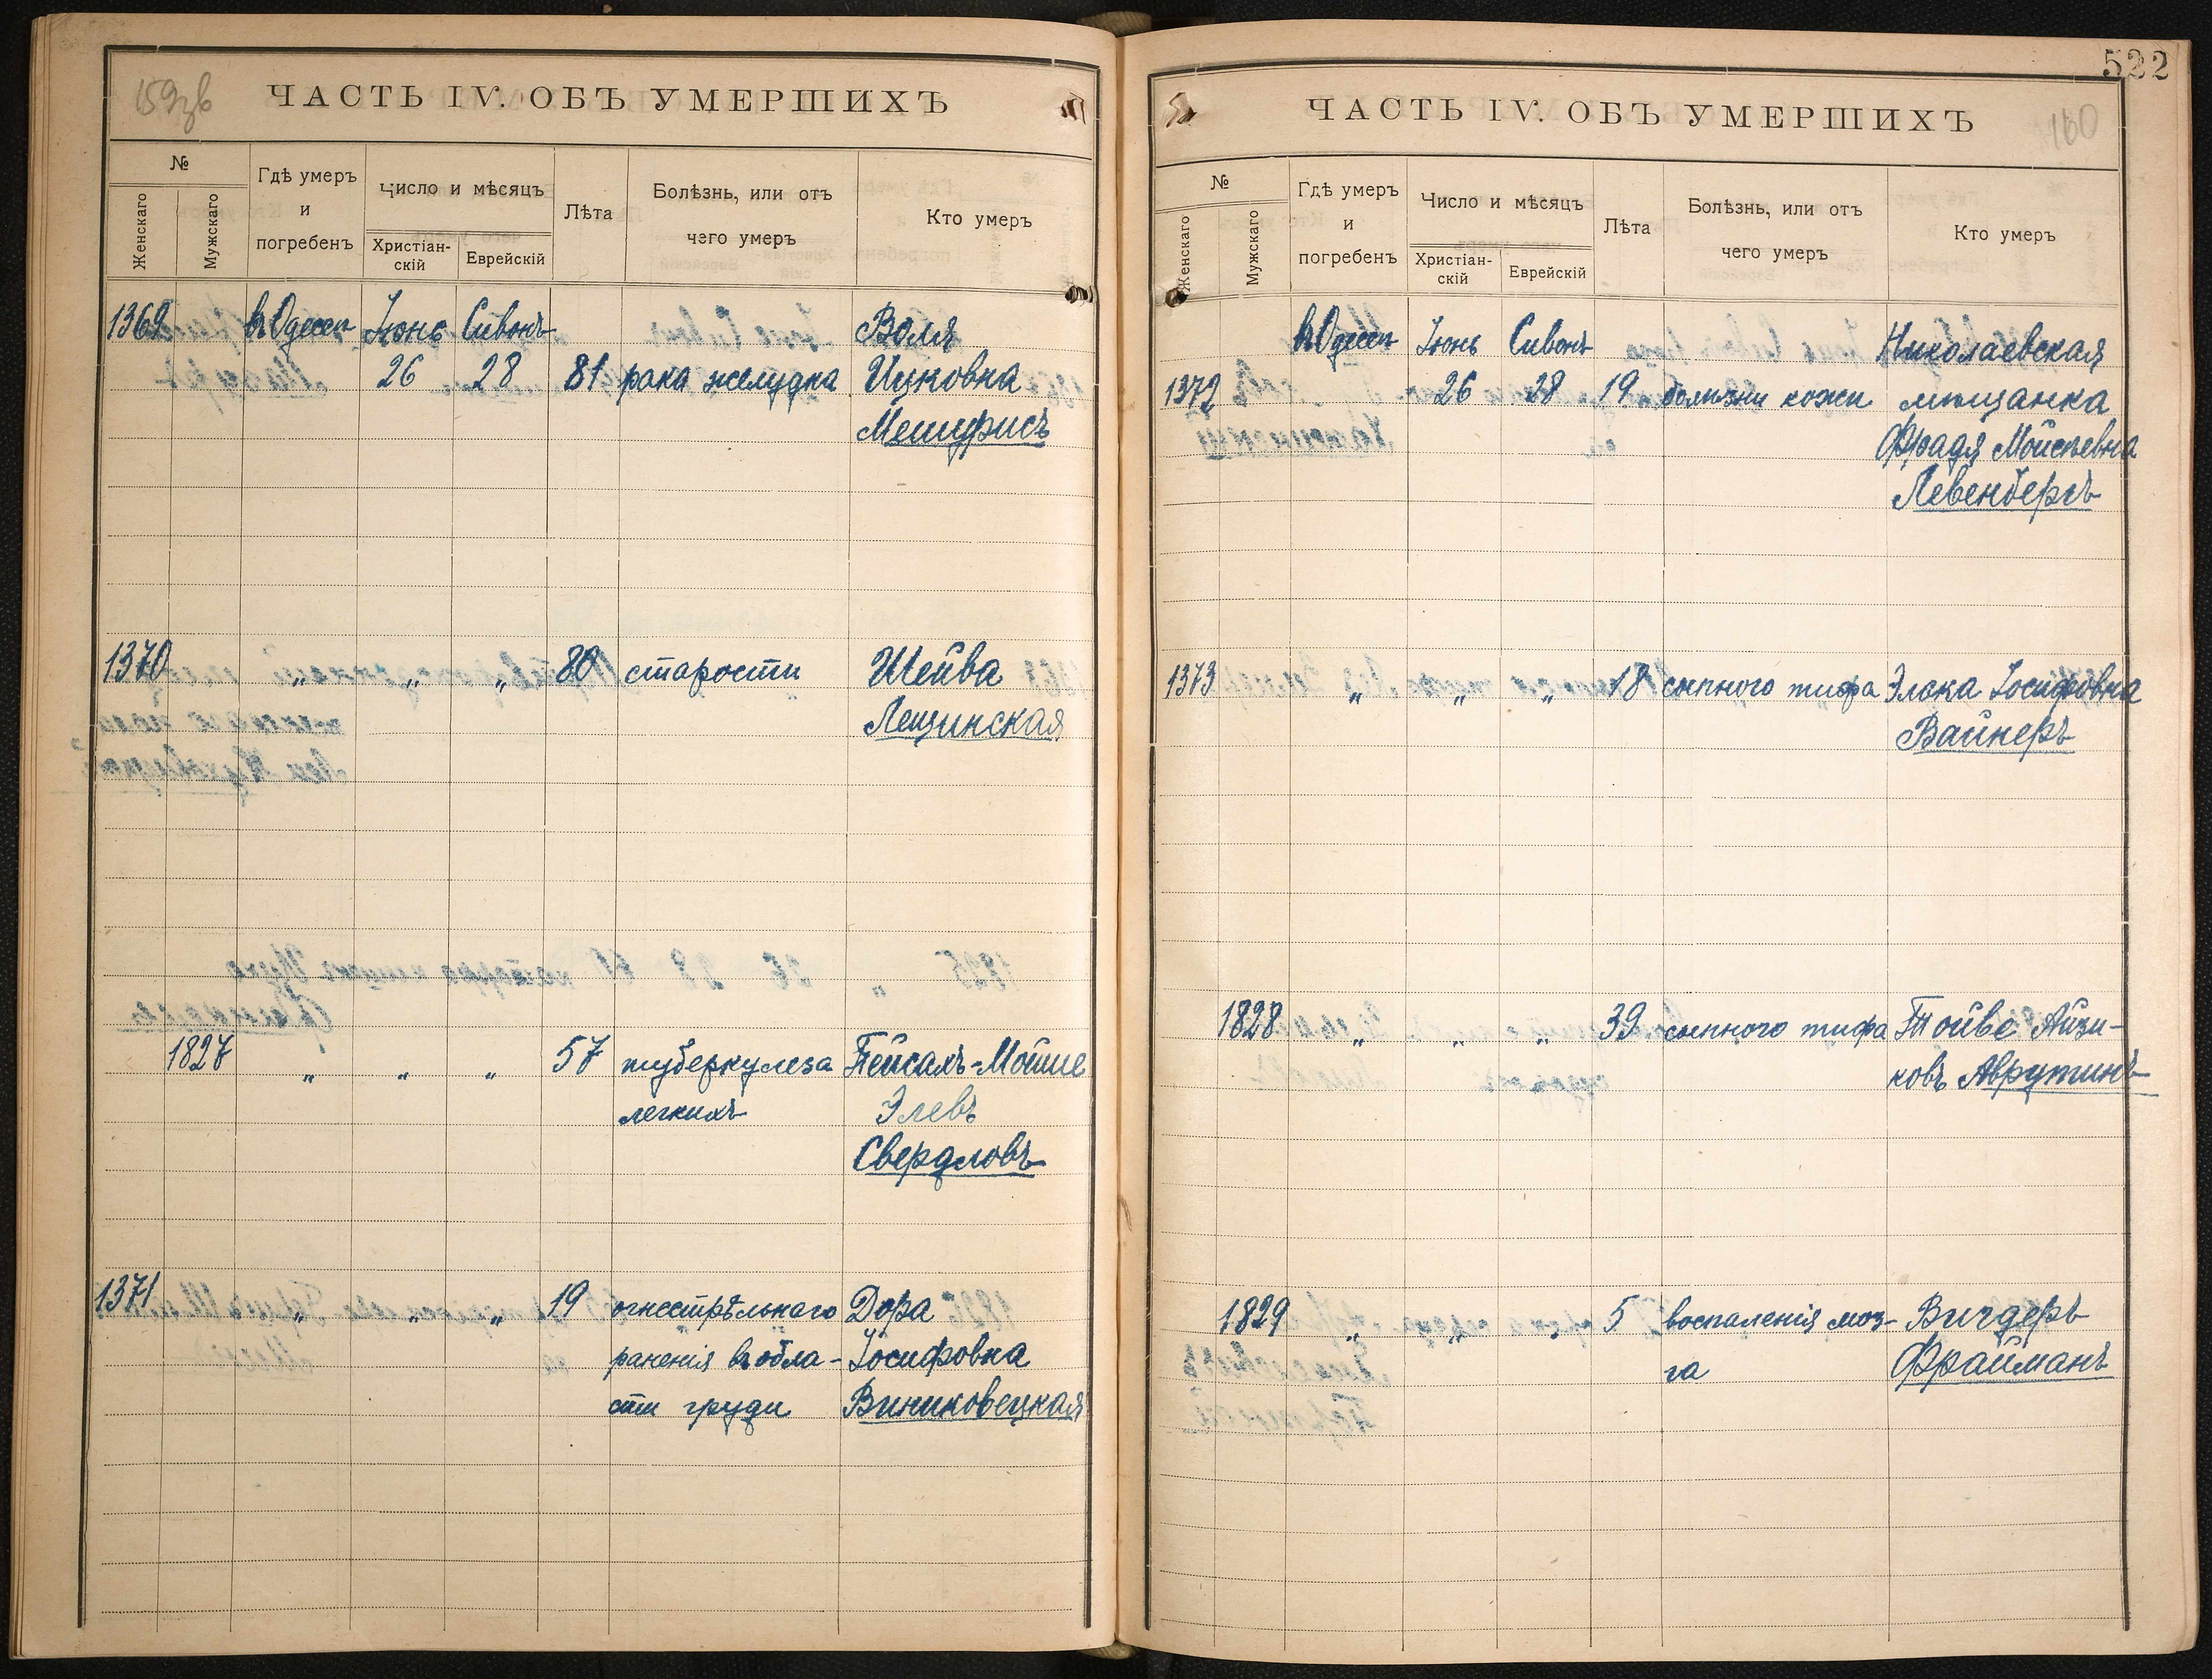 159зв
ЧАСТЬ IV. ОБЪ УМЕРШИХЪ
№
Женскаго
Мужскаго
Гдѣ умеръ
и
погребенъ
Число и мѣсяцъ
Христіан-
скій
Еврейскій
Лѣта
Болѣзнь, или отъ
чего умеръ
Кто умеръ
1369 въ Одессѣ Іюнь Сивонъ Воля
26 28 81 рака желудка Ицковна
Мешифисъ
1370 „ „ „ 80 старости Шейва
Лещинская
1827 „ „ „ 57 туберкулеза Пейсахъ-Мойше
легкихъ Элевъ
Свердловъ
1371 „ „ „ 19 огнестрѣльнаго Дора
раненія въ обла- Іосифовна
сти груди Виниковецкая
522
ЧАСТЬ IV. ОБЪ УМЕРШИХЪ
160
№
Женскаго
Мужскаго
Гдѣ умеръ
и
погребенъ
Число и мѣсяцъ
Христіан-
скій
Еврейскій
Лѣта
Болѣзнь, или отъ
чего умеръ
Кто умеръ
въ Одессѣ Іюнь Сивонъ Николаевская
1372 26 28 19 болѣзни кожи мѣщанка
Фрадя Мойсѣевна
Левенбергъ
1373 „ „ „ 18 сыпного тифа Элька Іосифовна
Вайнеръ
1828 „ „ „ 39 сыпного тифа Тойве Айзи-
ковъ Аврутинъ
1829 „ „ „ 5 воспаленія моз- Вигдеръ
га Фрайманъ